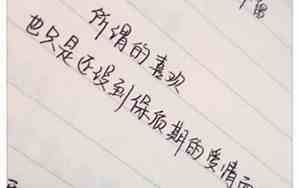 所谓的喜欢
也只是还没到保质期的爱情而